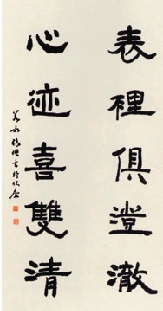 表裡俱澄澈
心迹喜雙清